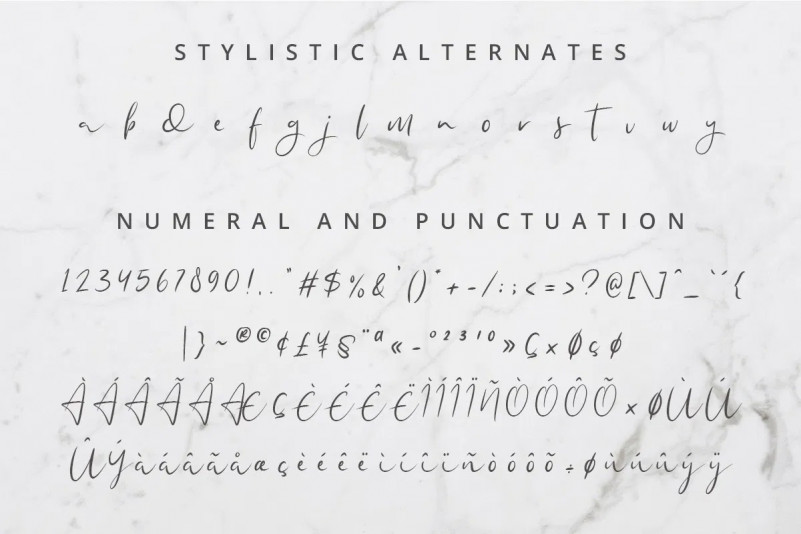 STYLISTIC ALTERNATES
a b d e f g j l m n o r s t v w y
NUMERAL AND PUNCTUATION
1234567890!..."#$%&'()*+-/:;<=>?@[\]^_`` {
|}~®©¢£¥§¨ª«-º²³¹⁰»Ç×Øçø
ÀÁÂÃÅÆÇÈÉÊËÌÍÎÏÑÒÓÔÕ×ØÙÚ
ÛÝàáâãåæçèéêëìíîïñòóôõ÷øùúûýÿ